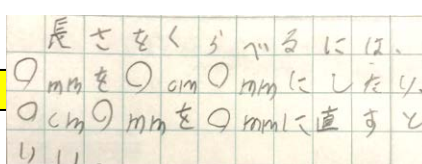 長さをくらべるには、
○mmを○cm○mmにしたり、
○cm○mmを○mmに直すと